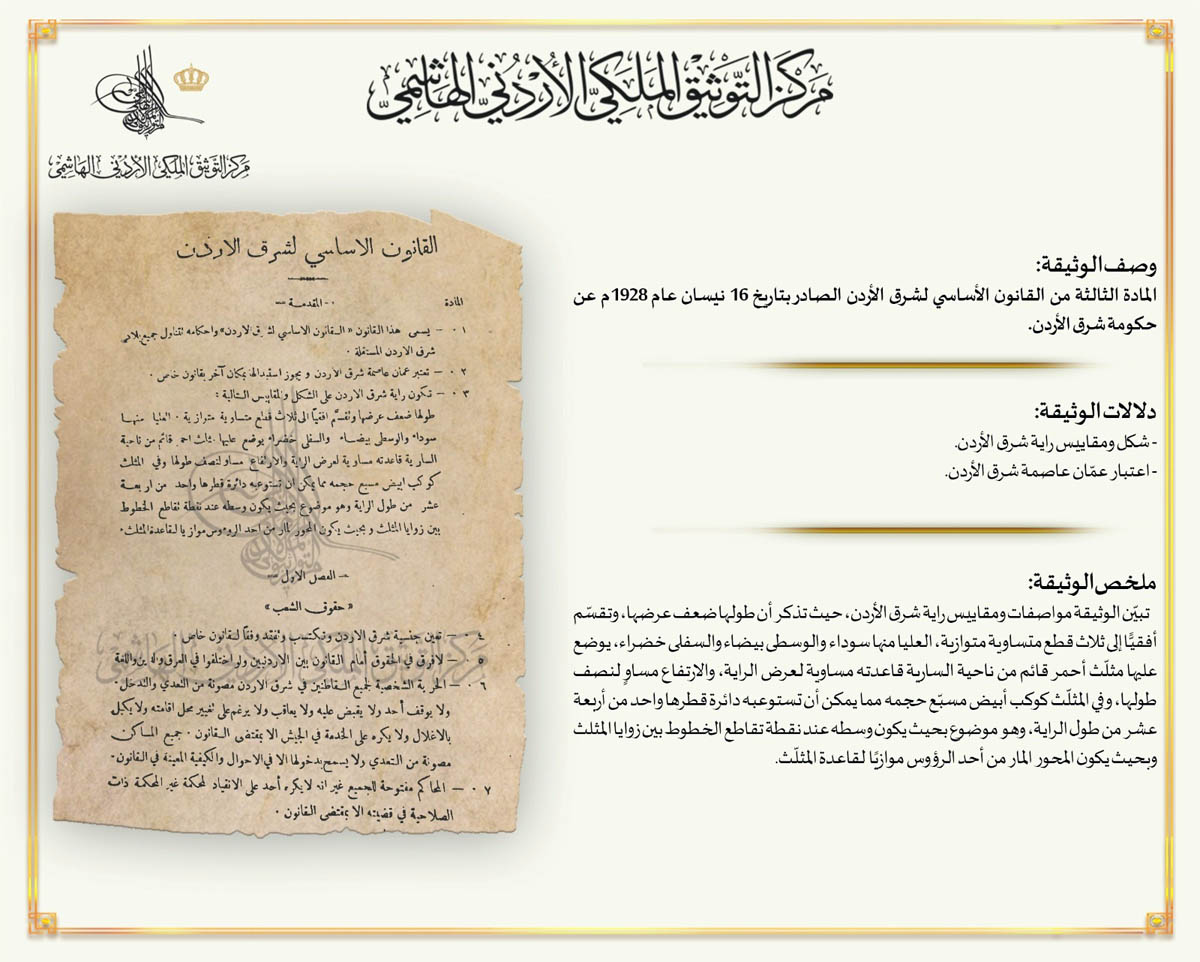 مركز التوثيق الملكي الأردني الهاشمي
مركز التوثيق الملكي الأردني الهاشمي
وصف الوثيقة:
المادة الثالثة من القانون الأساسي لشرق الأردن الصادر بتاريخ 16 نيسان عام 1928م عن
حكومة شرق الأردن.
دلالات الوثيقة:
- شكل ومقاييس راية شرق الأردن.
- اعتبار عمّان عاصمة شرق الأردن.
ملخص الوثيقة:
تبيّن الوثيقة مواصفات ومقاييس راية شرق الأردن، حيث تذكر أن طولها ضعف عرضها، وتقسّم
أفقيًّا إلى ثلاث قطع متساوية متوازية، العليا منها سوداء والوسطى بيضاء والسفلى خضراء، يوضع
عليها مثلّث أحمر قائم من ناحية السارية قاعدته مساوية لعرض الراية، والارتفاع مساوٍ لنصف
طولها، وفي المثلّث كوكب أبيض مسبّع حجمه مما يمكن أن تستوعبه دائرة قطرها واحد من أربعة
عشر من طول الراية، وهو موضوع بحيث يكون وسطه عند نقطة تقاطع الخطوط بين زوايا المثلث
وبحيث يكون المحور المار من أحد الرؤوس موازيًا لقاعدة المثلّث.
القانون الاساسي لشرق الاردن
المادة
المقدمة
٠١ – يسمى هذا القانون « القانون الاساسي لشرق الاردن» واحكامه تتناول جميع بلاد
شرق الاردن المستقلة ٠
٠٢ – تعتبر عمان عاصمة شرق الاردن و يجوز استبدالها بمكان آخر بقانون خاص ٠
٠٣ – تكون راية شرق الاردن على الشكل والمقاييس التالية :
طولها ضعف عرضها وتقسم افقياً الى ثلاث قطع متساوية متوازية ٠ العليا منهـا
سوداء والوسطى بيضاء والسفلى خضراء يوضع عليها مثلث احمر قائم من ناحية
السارية قاعدته مساوية لعرض الراية والارتفاع مساو لنصف طولها وفي المثلث
كوكب ابيض مسبع حجمه مما يمكن ان تستوعبه دائرة قطرها واحد من اربعـة
عشر من طول الراية وهو موضوع بحيث يكون وسطه عند نقطة تقاطع الخطوط
بين زوايا المثلث وبحيث يكون المحور المار من احد الروءوس موازيا لقاعدة المثلث٠
الفصل الاول
« حقوق الشعب »
٠٤ – تعين جنسية شرق الاردن وتكتسب وتفقد وفقاً لقانون خاص ٠
٠٥ – لافرق في الحقوق أمام القانون بين الاردنيين ولو اختلفوا في العرق والدين واللغة
٠٦ – الحرية الشخصية لجميع القاطنين في شرق الاردن مصونة من التعدي والتدخل ٠
ولا يوقف أحد ولا يقبض عليه ولا يعاقب ولا يرغم على تغيير محل اقامته ولا يكبل
بالاغلال ولا يكره على الخدمة في الجيش الا بمقتضى القـانون ٠ جميع المساكن
مصونة من التعدي ولا يسمح بدخولها الا في الاحوال والكيفية المعينة في القانون٠
٠٧ – المحاكم مفتوحة للجميع غير انه لا يكره أحد على الانقياد لمحكمة غير المحكمة ذات
الصلاحية في قضيته الا بمقتضى القانون ٠